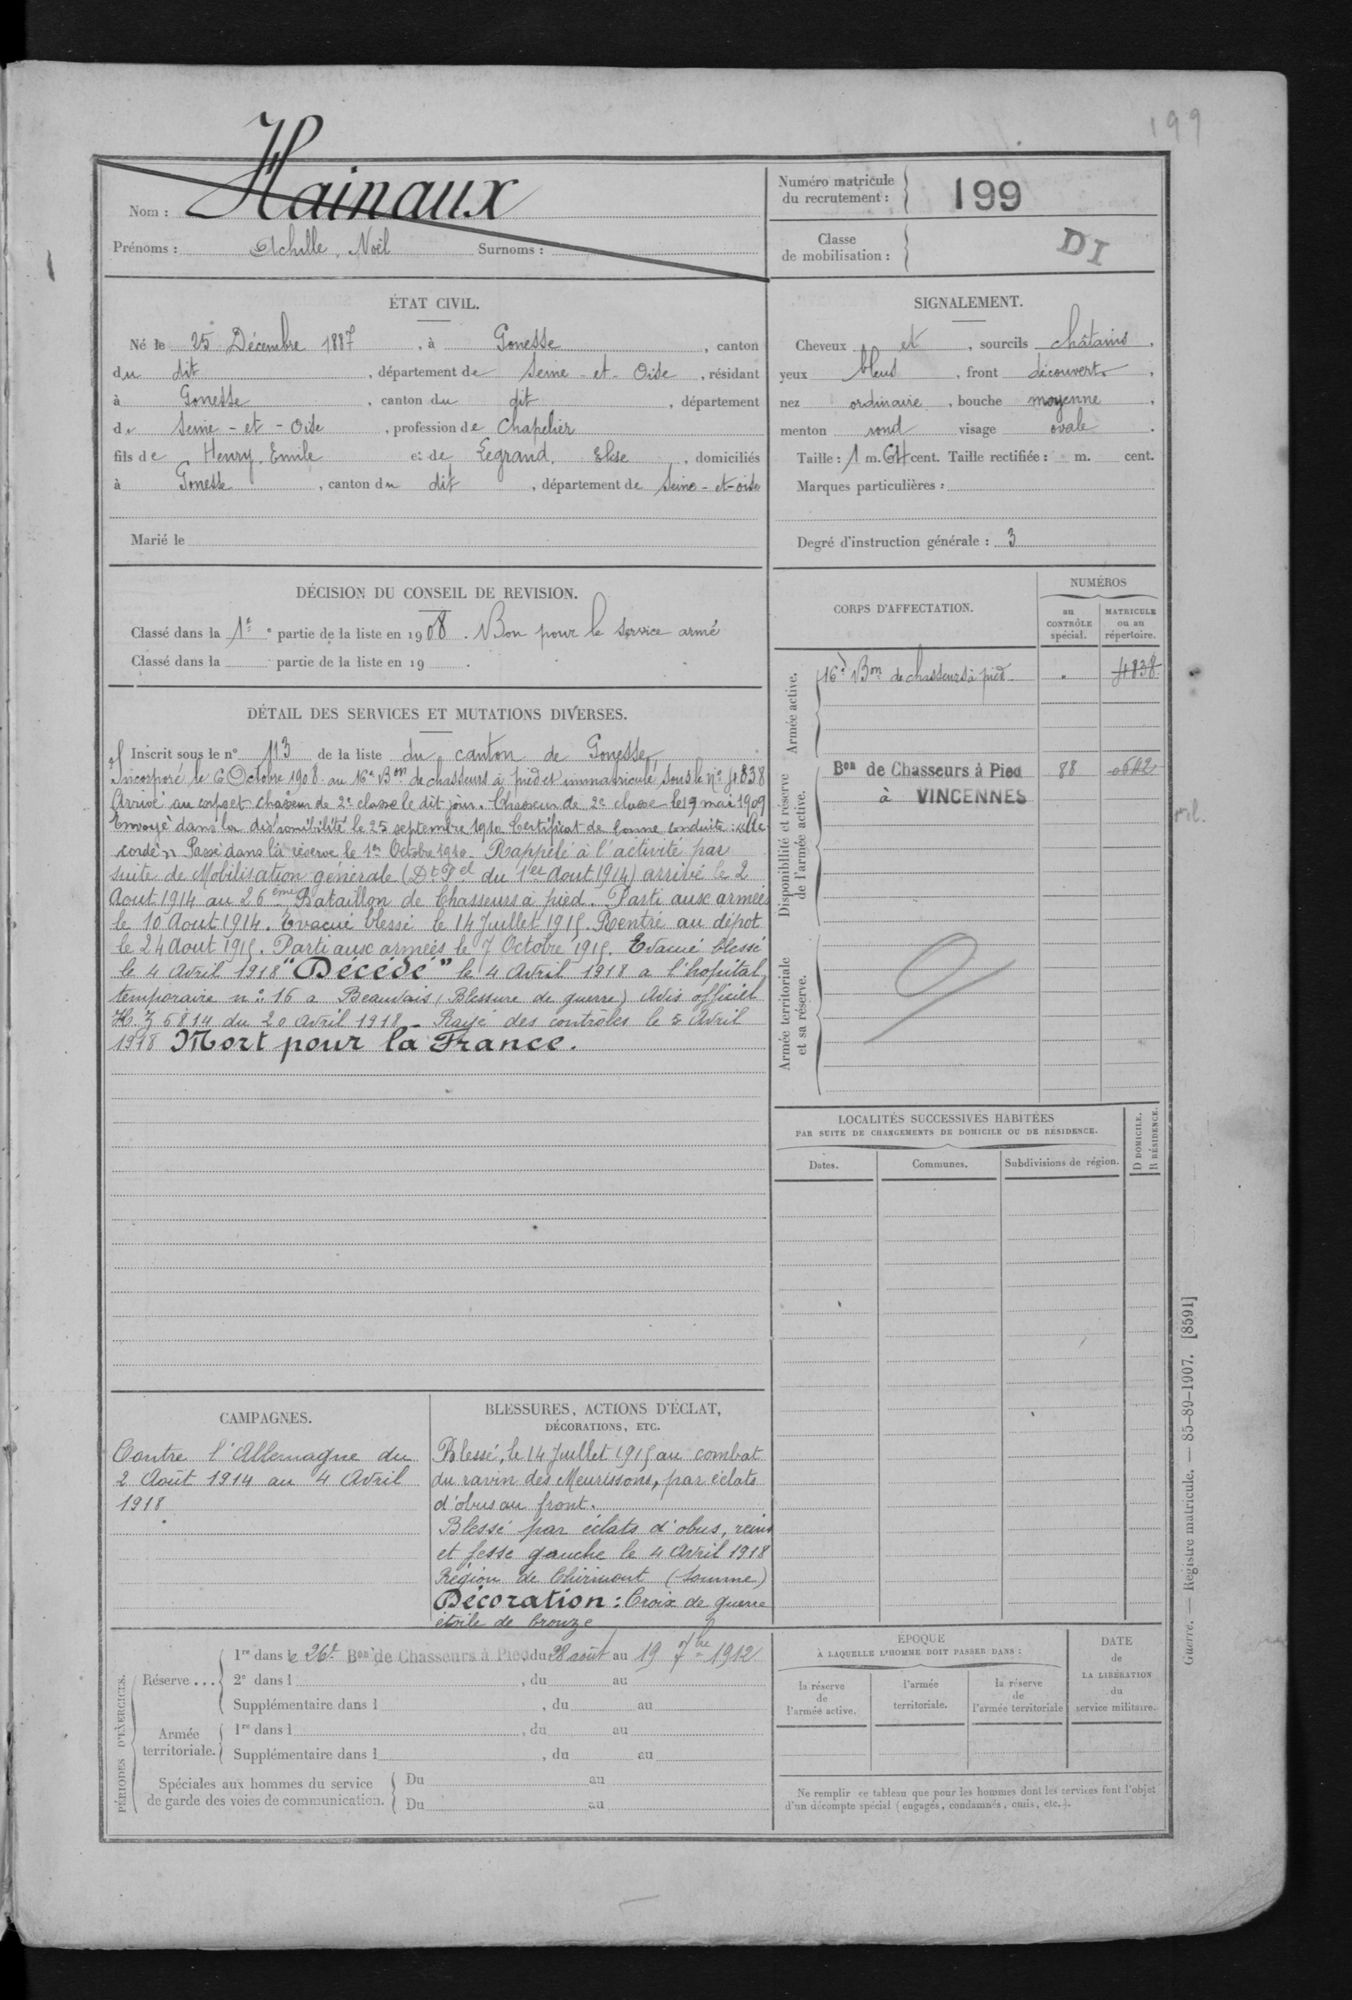 199
Nom : Hainaux
Prénoms : Achille, Noël Surnoms :
Numéro matricule du recrutement : 199
Classe de mobilisation :
DI
ÉTAT CIVIL.
Né le 25 Décembre 1887, à Gonesse, canton
du dit, département de Seine-et-Oise, résidant
à Gonesse, canton du dit, département
de Seine-et-Oise, profession de Chapelier
fils de Henry, Emile et de Legrand, Elise, domiciliés
à Gonesse, canton du dit, département de Seine-et-oise
Marié le
SIGNALEMENT.
Cheveux et, sourcils châtains,
yeux bleus, front découvert,
nez ordinaire, bouche moyenne,
menton rond visage ovale.
Taille : 1 m. 64 cent. Taille rectifiée : m. cent.
Marques particulières :
Degré d'instruction générale : 3
DÉCISION DU CONSEIL DE REVISION.
Classé dans la 1e partie de la liste en 1908. Bon pour le service armé
Classé dans la partie de la liste en 19 .
DÉTAIL DES SERVICES ET MUTATIONS DIVERSES.
Inscrit sous le n° 113 de la liste du canton de Gonesse,
Incorporé le 6 Octobre 1908 au 16e Bon de chasseurs à pied et immatriculé sous le N° 4838
Arrivé au corps et chasseur de 2e classe le dit jour. Chasseur de 2e classe le 19 mai 1909
Envoyé dans la disponibilité le 25 septembre 1910 Certificat de bonne conduite : "Ac-
cordé" Passé dans la réserve le 1er Octobre 1910. Rappelé à l'activité par
suite de Mobilisation générale (Dt Pel du 1er Aout 1914) arrivé le 2
Aout 1914 au 26ème Bataillon de Chasseurs à pied. Parti aux armées
le 10 Aout 1914. Evacué blessé le 14 Juillet 1915. Rentré au dépot
le 24 Aout 1915. Parti aux armées le 7 Octobre 1915. Evacué blessé
le 4 Avril 1918 "Décédé" le 4 Avril 1918 a l'hopital
temporaire n° 16 a Beauvais (Blessure de guerre) Avis officiel
6814 du 20 Avril 1918 - Rayé des contrôles le 5 Avril
1918 Mort pour la France.
CORPS D'AFFECTATION.
NUMÉROS
au CONTRÔLE spécial.
MATRICULE ou au répertoire.
Armée active.
16e Bon de chasseurs à pied " 4838
Disponibilité et réserve de l'armée active.
Bon de Chasseurs à Pied 88
à VINCENNES
Armée territoriale et sa réserve.
LOCALITÉS SUCCESSIVES HABITÉES
PAR SUITE DE CHANGEMENTS DE DOMICILE OU DE RÉSIDENCE.
Dates. Communes. Subdivisions de région.
D DOMICILE.
R RÉSIDENCE.
CAMPAGNES.
Contre l'Allemagne du
2 Août 1914 au 4 Avril
1918
BLESSURES, ACTIONS D'ÉCLAT,
DÉCORATIONS, ETC.
Blessé, le 14 Juillet 1915 au combat
du ravin des Meurissons, par éclats
d'obus au front.
Blessé par éclats d'obus, reins
et fesse gauche le 4 Avril 1918
Région de Chirmont (Somme)
Décoration : Croix de guerre
étoile de bronze
PÉRIODES D'EXERCICES.
Réserve ...
1re dans le 26e Bon de Chasseurs à Pied du 28 août au 19 7bre 1912
2e dans l , du au
Supplémentaire dans l , du au
Armée territoriale.
1re dans l , du au
Supplémentaire dans l , du au
Spéciales aux hommes du service
de garde des voies de communication.
Du au
Du au
ÉPOQUE
À LAQUELLE L'HOMME DOIT PASSER DANS :
la réserve de l'armée active.
l'armée territoriale.
la réserve de l'armée territoriale
DATE de LA LIBÉRATION du service militaire.
Ne remplir ce tableau que pour les hommes dont les services font l'objet
d'un décompte spécial (engagés, condamnés, omis, etc.).
Guerre. — Registre matricule. — 85-89-1907. [8591]